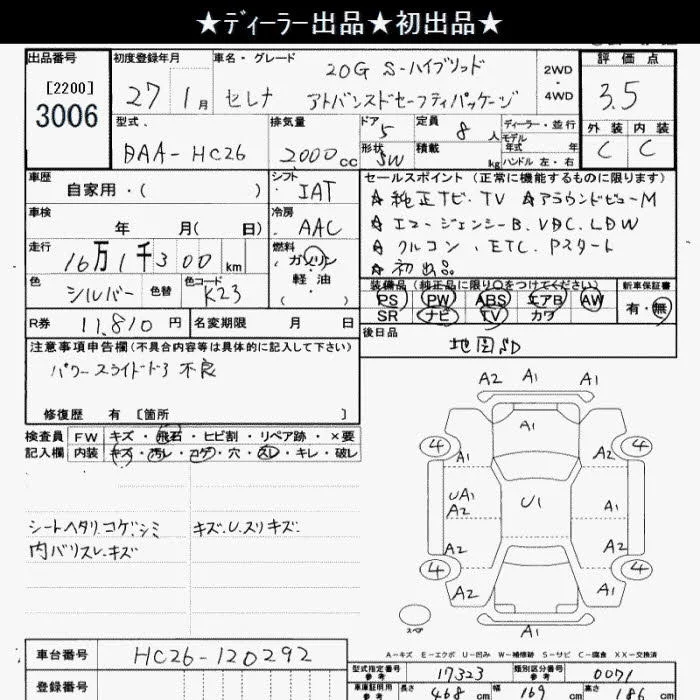 ★ディーラー出品★初出品★
出品番号 初度登録年月 車名・グレード 評価点
[2200]
3006
27 1月 セレナ 20G S-ハイブリッド
アドバンスドセーフティパッケージ
2WD
4WD
3.5
外装 内装
C C
型式 排気量 ドア 定員 ディーラー・並行
DAA-HC26 2000cc 5 8人
モデル年式 年
形状 SW 積載 kg ハンドル 左・右
車歴 自家用・( )
シフト IAT
車検 年 月( 日)
冷房 AAC
走行 16万1千300km
燃料 ガソリン
軽油
( )
色 シルバー 色替 色コード K23
R券 11,810円 名変期限 月 日
セールスポイント(正常に機能するものに限ります)
☆純正ナビ・TV ☆アラウンドビューM
☆エマージェンシーB、VDC、LDW
☆クルコン、ETC、Pスタート
☆初出品
装備品(純正品に限り○をつけてください) 新車保証書
PS PW ABS エアB AW
SR ナビ TV カワ
有・無
後日品
地図SD
注意事項申告欄(不具合内容等は具体的に記入して下さい)
パワースライドドア不良
修復歴 有 [箇所 ]
検査員 FW キズ・飛石・ヒビ割・リペア跡・×要
記入欄 内装 キズ・汚レ・コゲ・穴・スレ・キレ・破レ
シートヘタリ、コゲ、シミ キズ、U、スリキズ、
内バリスレ、キズ
A2 A1 A1
A1
4 4
A1 A2
UA1
A2
U1
A1
A2 A2
4 4
A2 A1
スペア
A1
A-キズ E-エクボ U-凹み W-補修跡 S-サビ C-腐食 XX-交換済
車台番号 HC26-120292
登録番号
型式指定番号 参考 17323 類別区分番号 参考 0071
車庫証明用 参考 長さ 468cm 幅 169cm 高さ 186cm